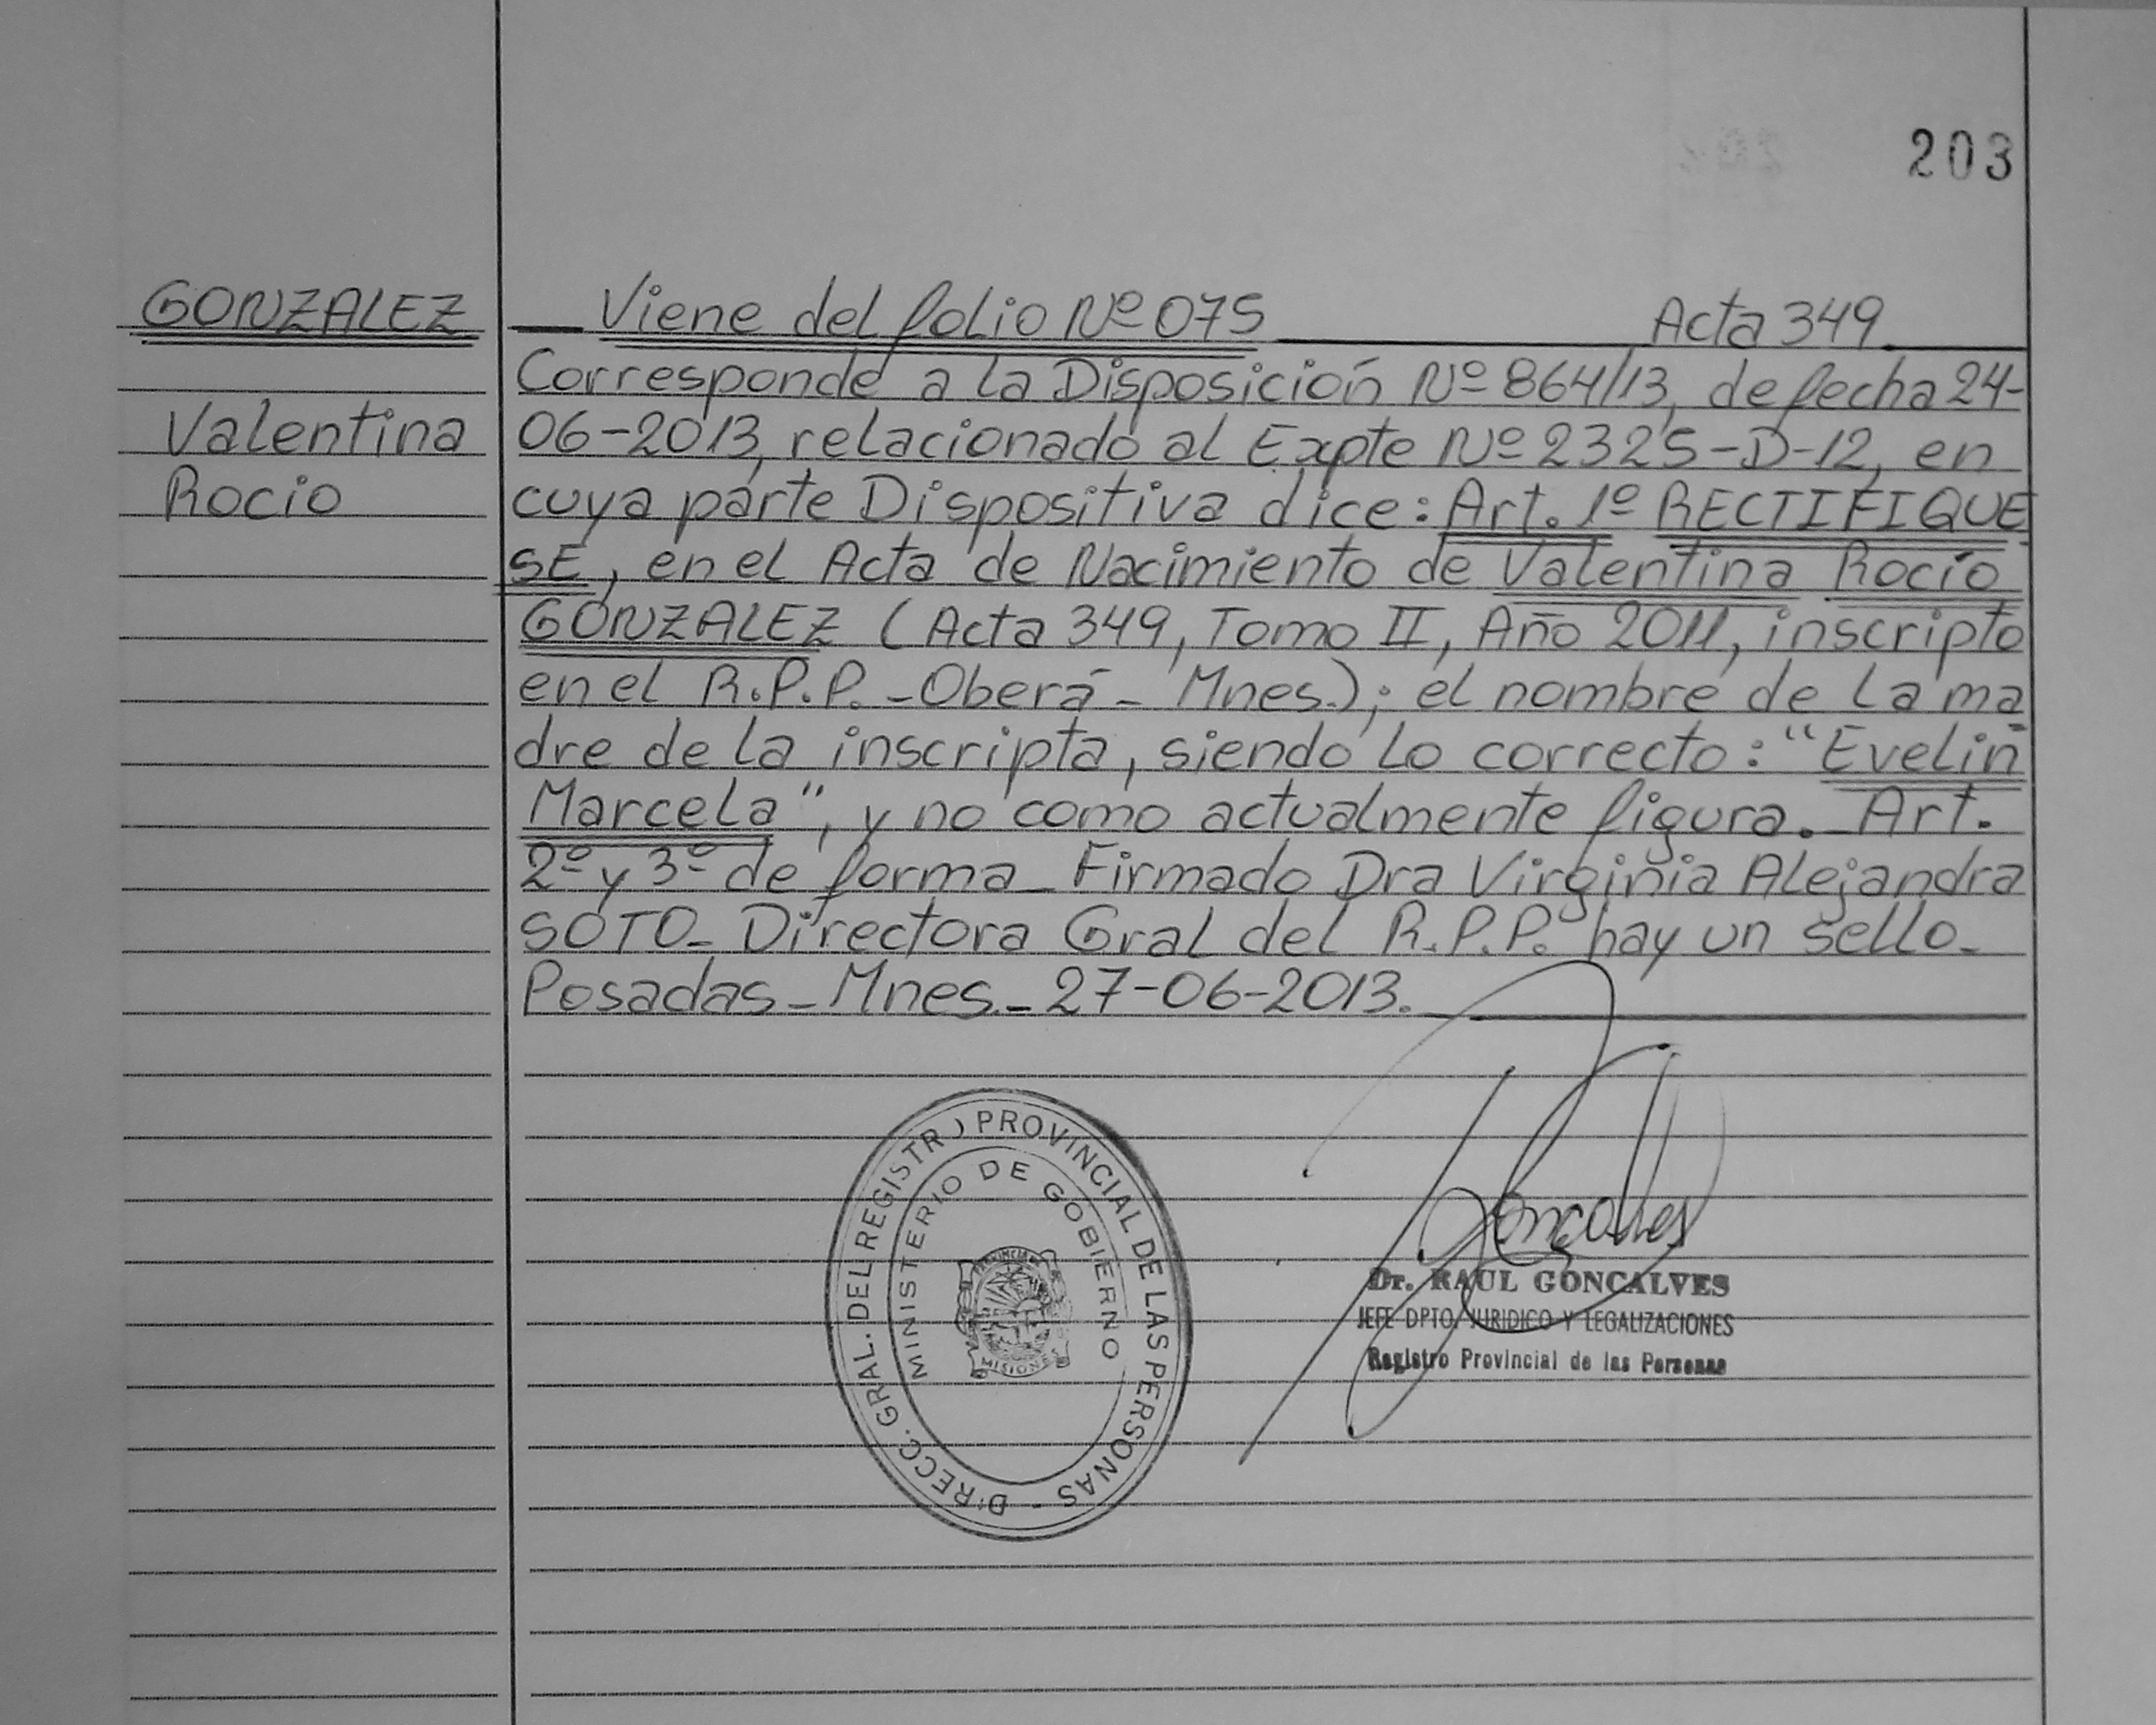 203
GONZALEZ
Valentina
Rocio
Viene del folio Nº 075 Acta 349
Corresponde a la Disposición Nº 864/13, de fecha 24-
06-2013, relacionado al Expte Nº 2325-D-12, en
cuya parte Dispositiva dice: Art. 1º RECTIFIQUE
SE, en el Acta de Nacimiento de Valentina Rocío
GONZALEZ (Acta 349, Tomo II, Año 2011, inscripto
en el R.P.P. - Oberá - Mnes.); el nombre de la ma
dre de la inscripta, siendo lo correcto: "Evelin
Marcela", y no como actualmente figura. Art.
2º y 3º de forma - Firmado Dra Virginia Alejandra
SOTO - Directora Gral del R.P.P. hay un sello -
Posadas - Mnes. - 27-06-2013.
DIRECC. GRAL. DEL REGISTRO PROVINCIAL DE LAS PERSONAS -
MINISTERIO DE GOBIERNO
PROVINCIA
MISIONES
Goncalves
Dr. RAUL GONCALVES
JEFE DPTO JURIDICO Y LEGALIZACIONES
Registro Provincial de las Personas